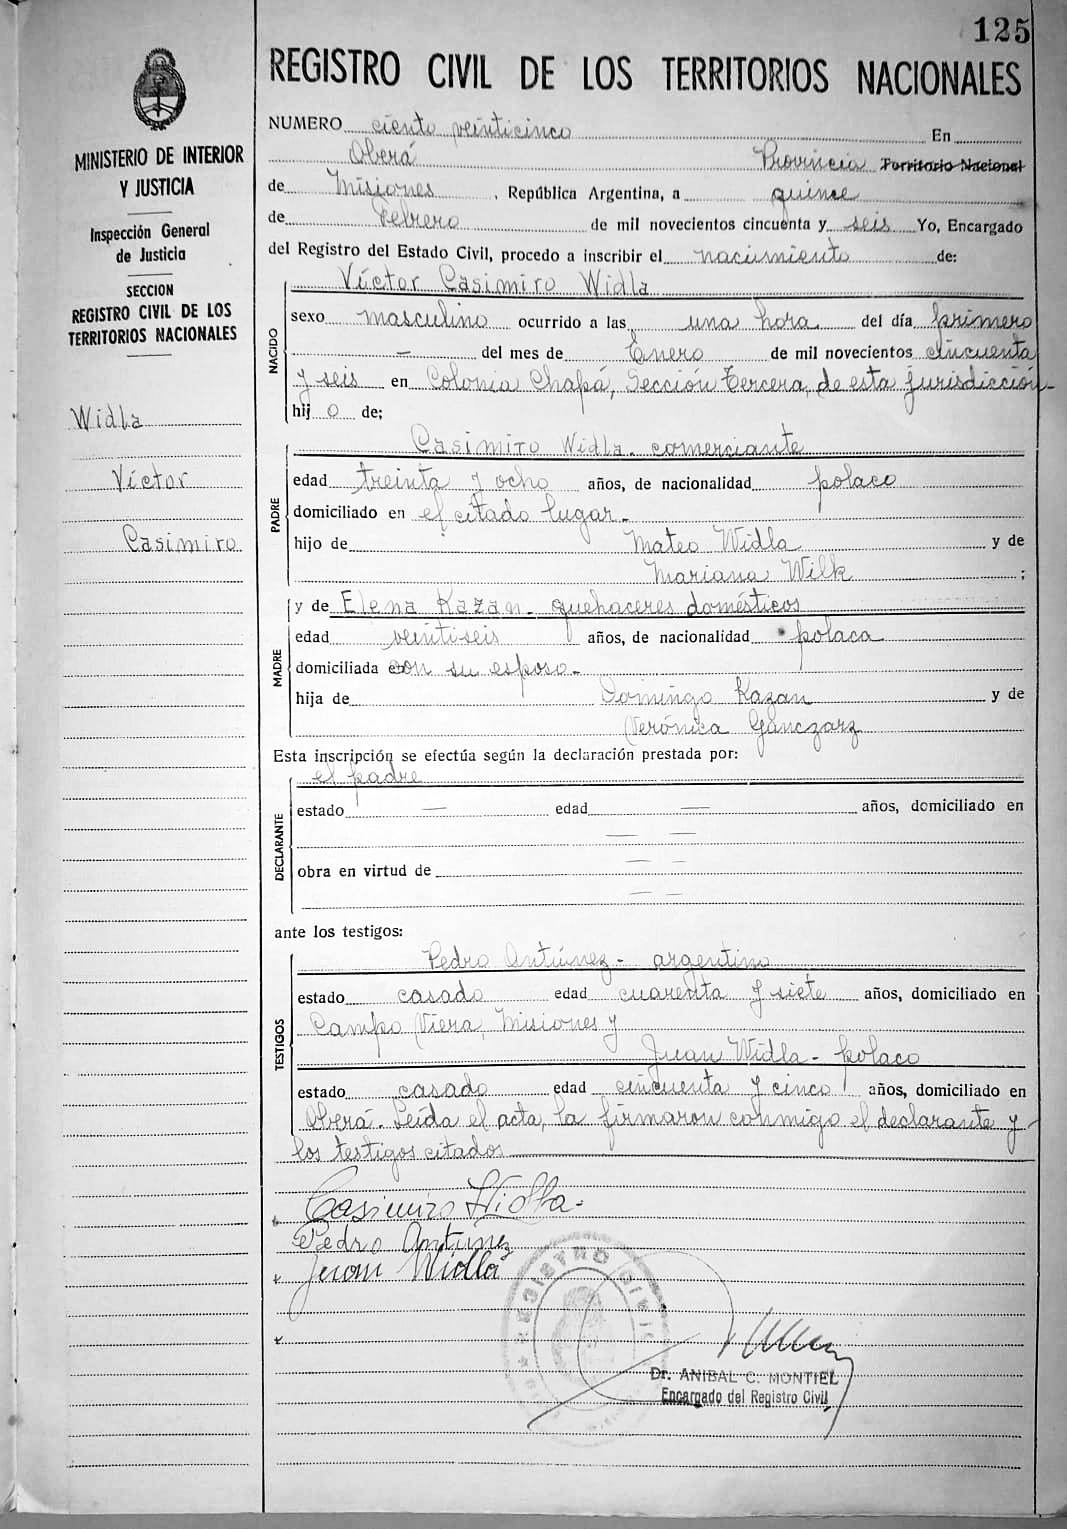 125
REGISTRO CIVIL DE LOS TERRITORIOS NACIONALES
MINISTERIO DE INTERIOR
Y JUSTICIA
Inspección General
de Justicia
SECCION
REGISTRO CIVIL DE LOS
TERRITORIOS NACIONALES
Widla
Víctor
Casimiro
NUMERO ciento veinticinco En
Oberá Provincia Territorio Nacional
de Misiones, República Argentina, a quince
de Febrero de mil novecientos cincuenta y seis Yo, Encargado
del Registro del Estado Civil, procedo a inscribir el nacimiento de:
NACIDO
Víctor Casimiro Widla
sexo masculino ocurrido a las una hora del día primero
— del mes de Enero de mil novecientos cincuenta
y seis en Colonia Chapá, Sección Tercera, de esta jurisdicción-
hij o de;
PADRE
Casimiro Widla - comerciante
edad treinta y ocho años, de nacionalidad polaco
domiciliado en el citado lugar-
hijo de Mateo Widla y de
Mariana Wilk ;
MADRE
y de Elena Kazan - quehaceres domésticos
edad veintiseis años, de nacionalidad polaca
domiciliada con su esposo-
hija de Domingo Kazan y de
Verónica Ganczarz
Esta inscripción se efectúa según la declaración prestada por:
DECLARANTE
el padre
estado — edad — años, domiciliado en
— —
obra en virtud de — —
— —
ante los testigos:
TESTIGOS
Pedro Antúnez - argentino
estado casado edad cuarenta y siete años, domiciliado en
Campo Viera, Misiones y
Juan Widla - polaco
estado casado edad cincuenta y cinco años, domiciliado en
Oberá. Leída el acta, la firmaron conmigo el declarante y
los testigos citados
Casimiro Widla-
Pedro Antunez
Juan Widla
REGISTRO CIVIL
Dr. ANIBAL C. MONTIEL
Encargado del Registro Civil